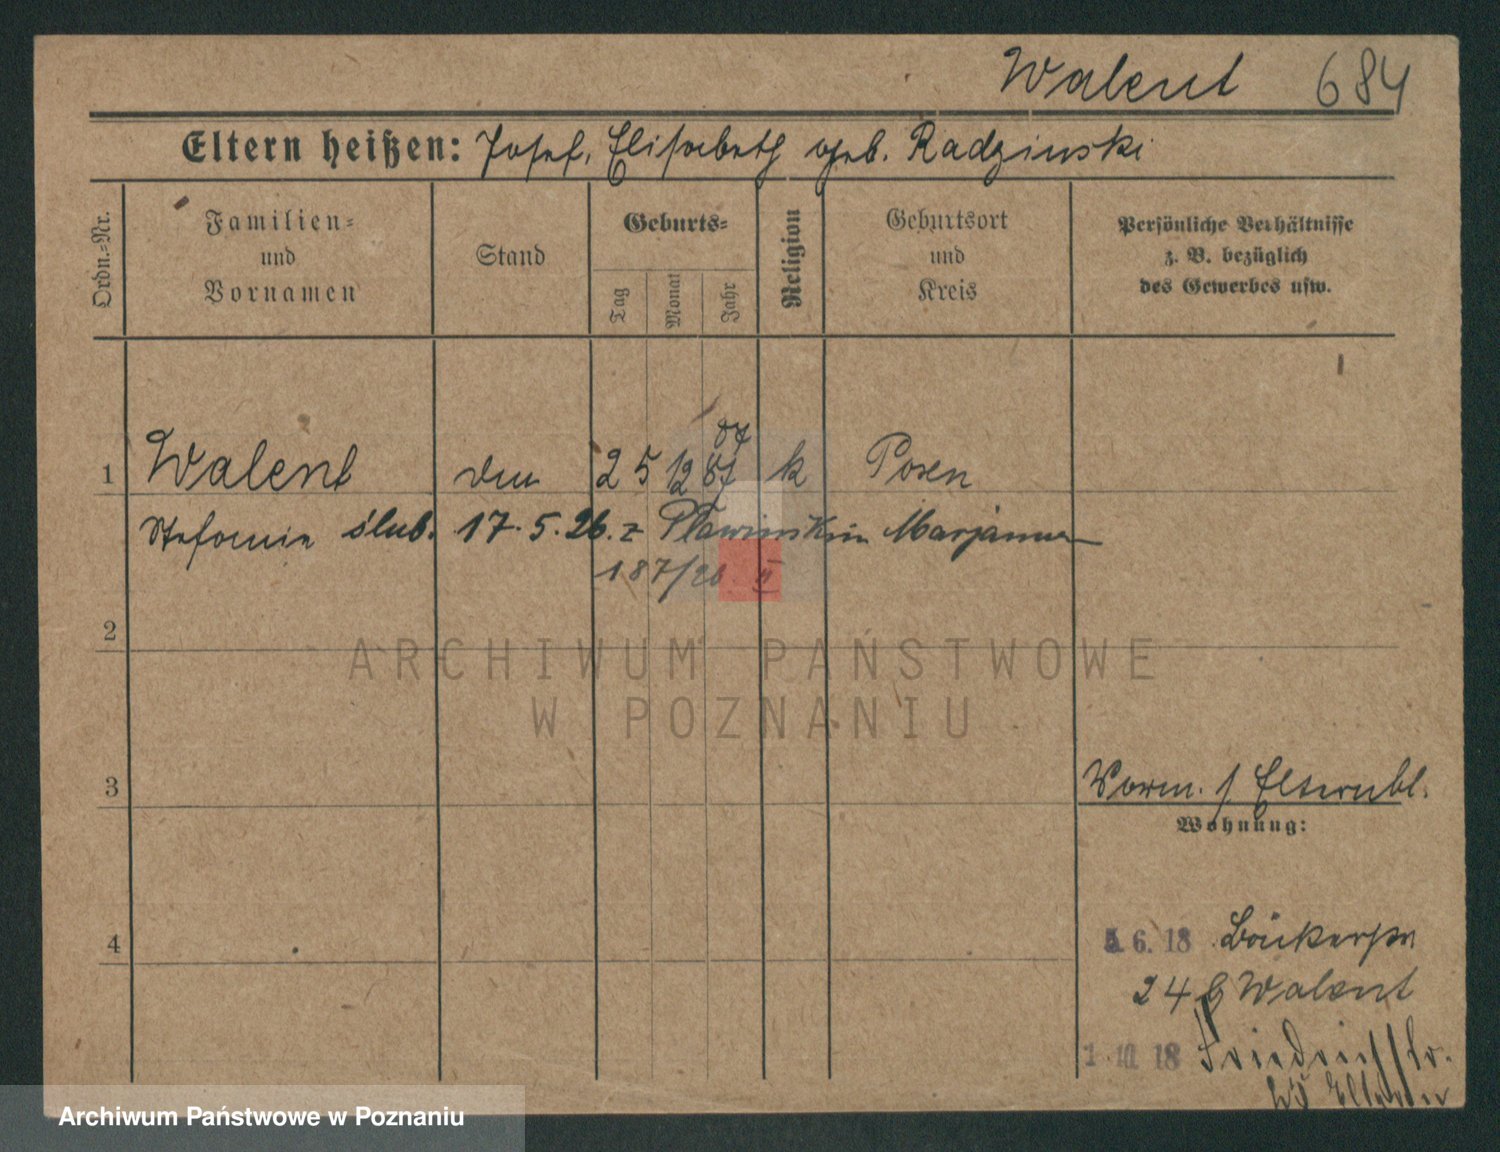 Walent 684
Eltern heißen: Josef, Elisabeth geb. Radzinski
Ordn.=Nr.
Familien=
und
Vornamen
Stand
Geburts=
Tag
Monat
Jahr
Religion
Geburtsort
und
Kreis
Persönliche Verhältnisse
z. B. bezüglich
des Gewerbes usw.
07
1 Walent 25 12 87 k Posen
Stefanie ślub. 17.5.26. z Marjanna
187/26 II
2
ARCHIWUM PAŃSTWOWE
W POZNANIU
3
Vorm. / Elternbl.
Wohnung:
4
6. 18 Bäckerstr
24 b Walent
1 10 18 Friedrichstr.
Archiwum Państwowe w Poznaniu